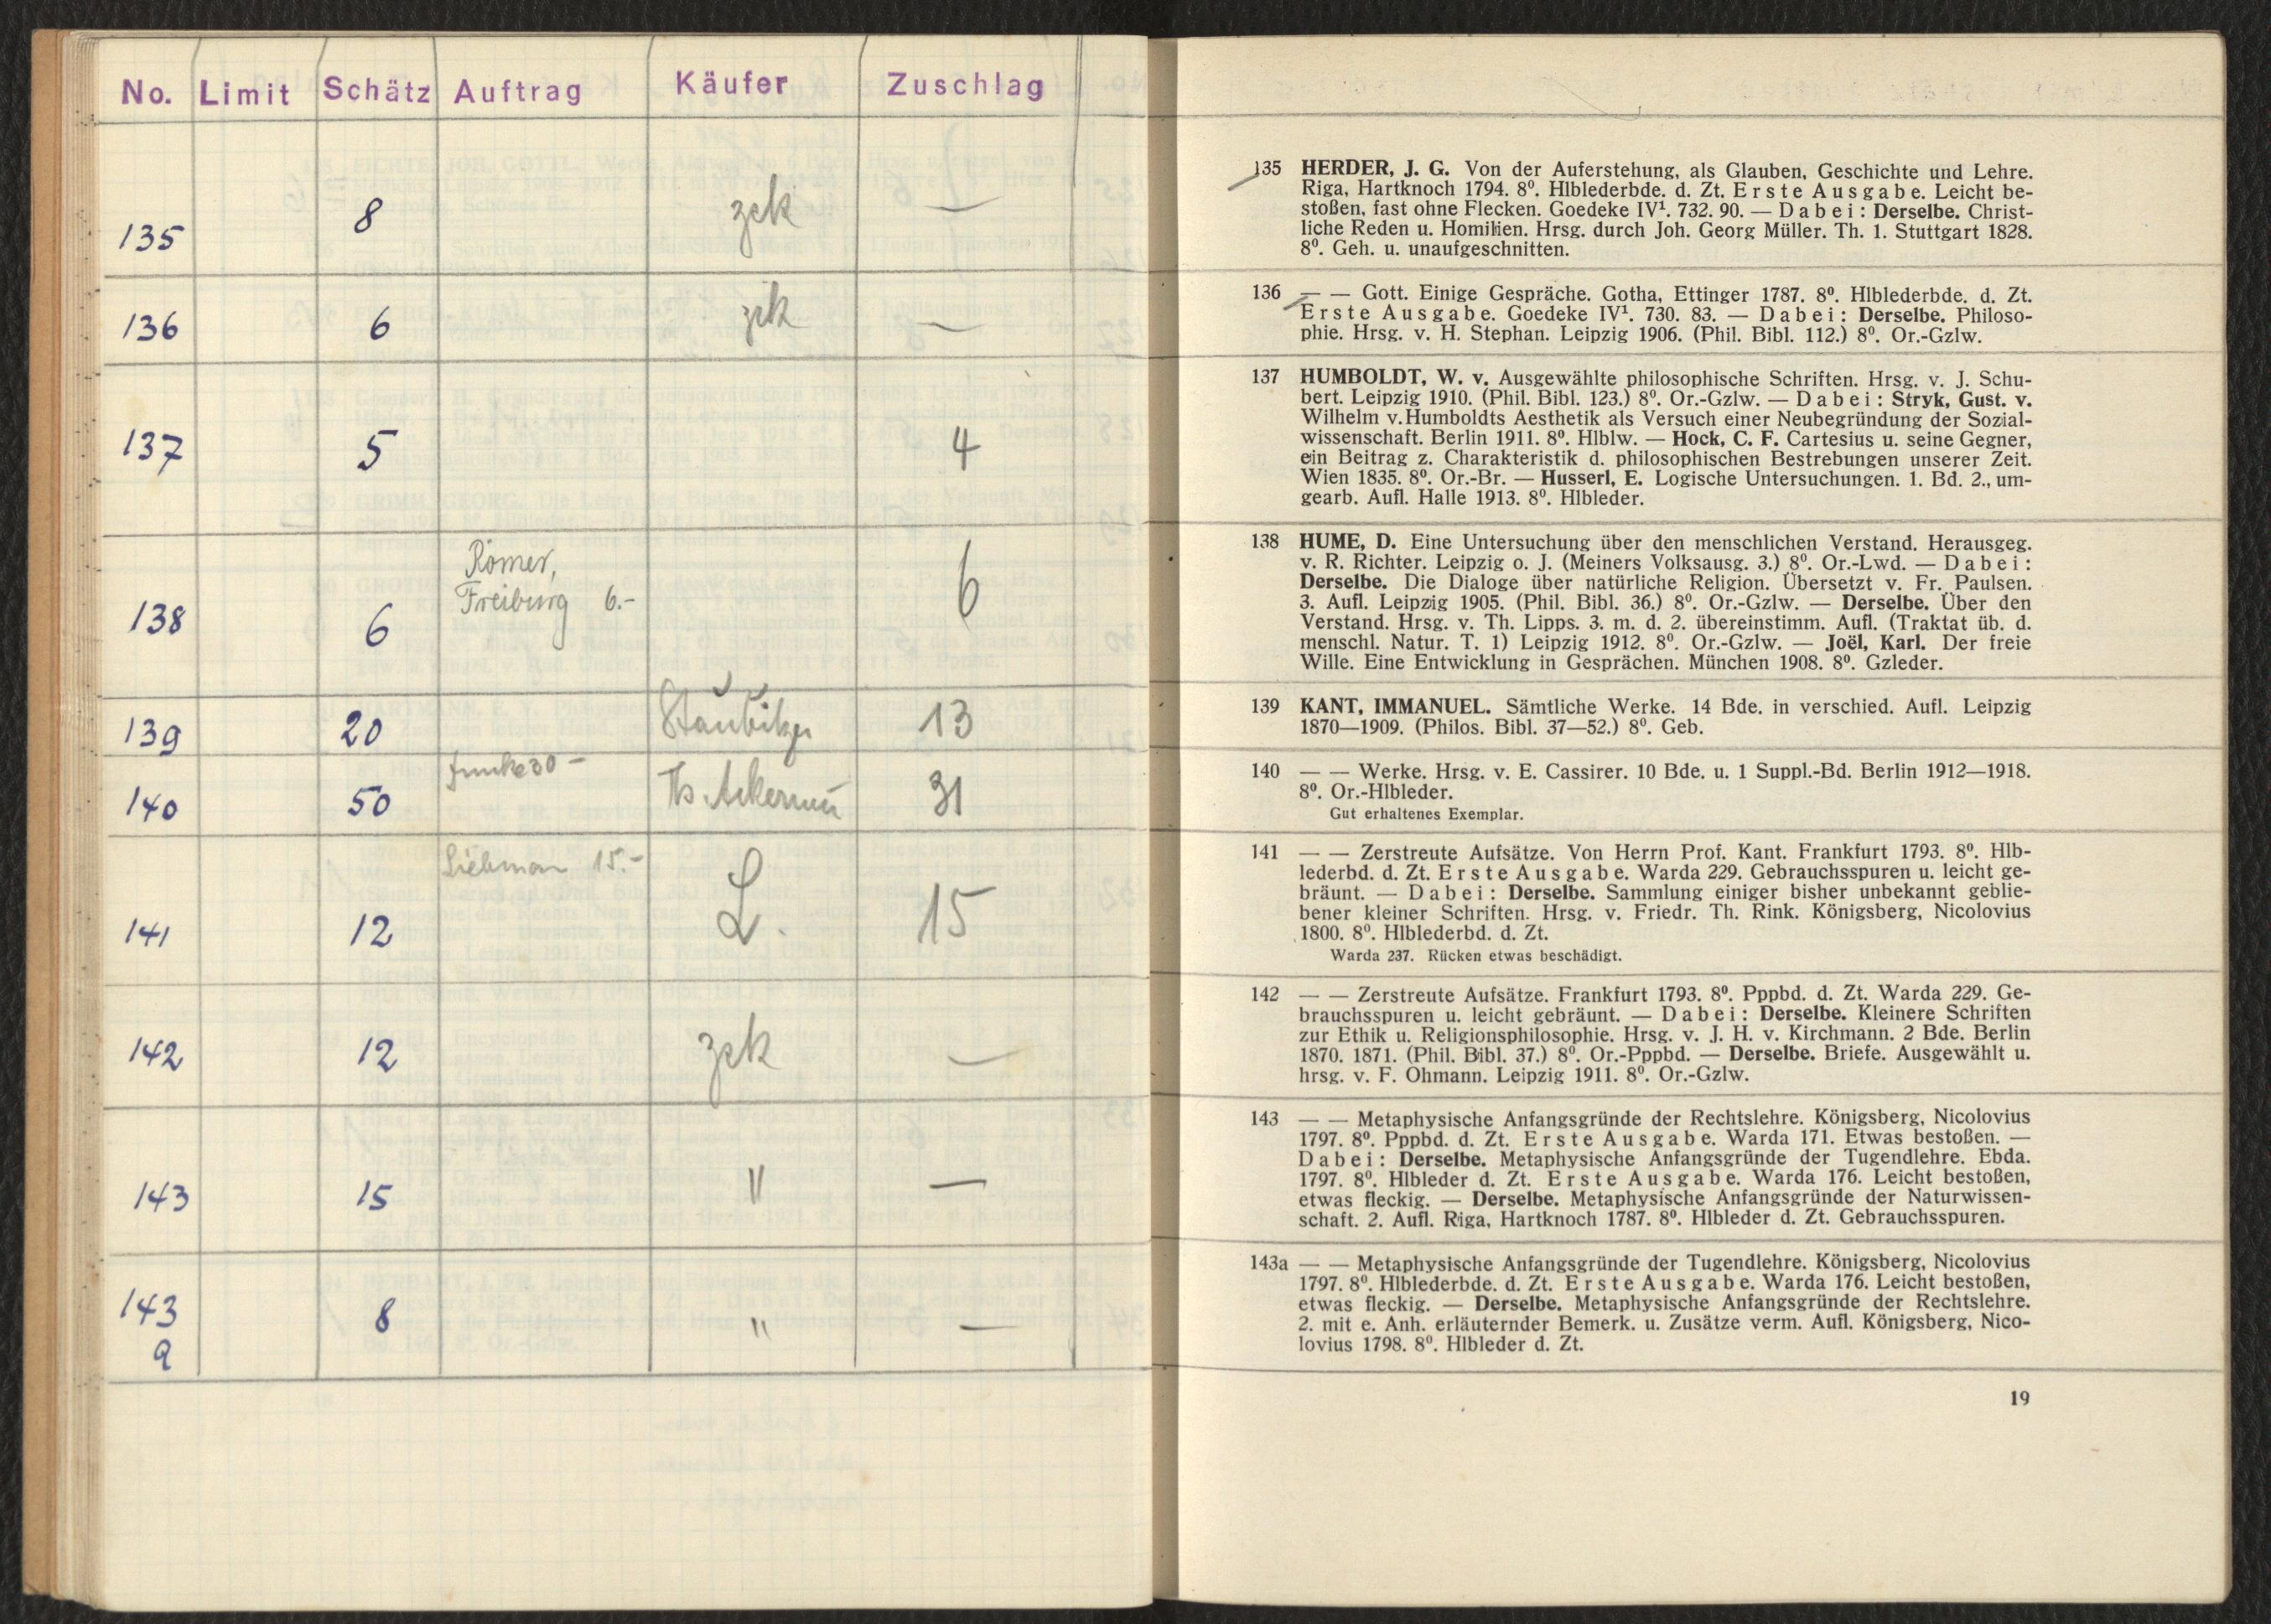 No. Limit Schätz Auftrag Käufer Zuschlag
135 8 zck —
136 6 zck —
137 5 4
138 6 Römer, Freiburg 6.- 6
139 20 13
140 50 Funke 30 - Th. Ackermann 31
141 12 Liebman 15.- L. 15
142 12 zck —
143 15 " —
143a 8 " —
135 HERDER, J. G. Von der Auferstehung, als Glauben, Geschichte und Lehre.
Riga, Hartknoch 1794. 8⁰. Hlblederbde. d. Zt. Erste Ausgabe. Leicht be-
stoßen, fast ohne Flecken. Goedeke IV¹. 732. 90. — Dabei: Derselbe. Christ-
liche Reden u. Homilien. Hrsg. durch Joh. Georg Müller. Th. 1. Stuttgart 1828.
8⁰. Geh. u. unaufgeschnitten.
136 — — Gott. Einige Gespräche. Gotha, Ettinger 1787. 8⁰. Hlblederbde. d. Zt.
Erste Ausgabe. Goedeke IV¹. 730. 83. — Dabei: Derselbe. Philoso-
phie. Hrsg. v. H. Stephan. Leipzig 1906. (Phil. Bibl. 112.) 8⁰. Or.-Gzlw.
137 HUMBOLDT, W. v. Ausgewählte philosophische Schriften. Hrsg. v. J. Schu-
bert. Leipzig 1910. (Phil. Bibl. 123.) 8⁰. Or.-Gzlw. — Dabei: Stryk, Gust. v.
Wilhelm v. Humboldts Aesthetik als Versuch einer Neubegründung der Sozial-
wissenschaft. Berlin 1911. 8⁰. Hlblw. — Hock, C. F. Cartesius u. seine Gegner,
ein Beitrag z. Charakteristik d. philosophischen Bestrebungen unserer Zeit.
Wien 1835. 8⁰. Or.-Br. — Husserl, E. Logische Untersuchungen. 1. Bd. 2., um-
gearb. Aufl. Halle 1913. 8⁰. Hlbleder.
138 HUME, D. Eine Untersuchung über den menschlichen Verstand. Herausgeg.
v. R. Richter. Leipzig o. J. (Meiners Volksausg. 3.) 8⁰. Or.-Lwd. — Dabei:
Derselbe. Die Dialoge über natürliche Religion. Übersetzt v. Fr. Paulsen.
3. Aufl. Leipzig 1905. (Phil. Bibl. 36.) 8⁰. Or.-Gzlw. — Derselbe. Über den
Verstand. Hrsg. v. Th. Lipps. 3. m. d. 2. übereinstimm. Aufl. (Traktat üb. d.
menschl. Natur. T. 1) Leipzig 1912. 8⁰. Or.-Gzlw. — Joël, Karl. Der freie
Wille. Eine Entwicklung in Gesprächen. München 1908. 8⁰. Gzleder.
139 KANT, IMMANUEL. Sämtliche Werke. 14 Bde. in verschied. Aufl. Leipzig
1870—1909. (Philos. Bibl. 37—52.) 8⁰. Geb.
140 — — Werke. Hrsg. v. E. Cassirer. 10 Bde. u. 1 Suppl.-Bd. Berlin 1912—1918.
8⁰. Or.-Hlbleder.
Gut erhaltenes Exemplar.
141 — — Zerstreute Aufsätze. Von Herrn Prof. Kant. Frankfurt 1793. 8⁰. Hlb-
lederbd. d. Zt. Erste Ausgabe. Warda 229. Gebrauchsspuren u. leicht ge-
bräunt. — Dabei: Derselbe. Sammlung einiger bisher unbekannt geblie-
bener kleiner Schriften. Hrsg. v. Friedr. Th. Rink. Königsberg, Nicolovius
1800. 8⁰. Hlblederbd. d. Zt.
Warda 237. Rücken etwas beschädigt.
142 — — Zerstreute Aufsätze. Frankfurt 1793. 8⁰. Pppbd. d. Zt. Warda 229. Ge-
brauchsspuren u. leicht gebräunt. — Dabei: Derselbe. Kleinere Schriften
zur Ethik u. Religionsphilosophie. Hrsg. v. J. H. v. Kirchmann. 2 Bde. Berlin
1870. 1871. (Phil. Bibl. 37.) 8⁰. Or.-Pppbd. — Derselbe. Briefe. Ausgewählt u.
hrsg. v. F. Ohmann. Leipzig 1911. 8⁰. Or.-Gzlw.
143 — — Metaphysische Anfangsgründe der Rechtslehre. Königsberg, Nicolovius
1797. 8⁰. Pppbd. d. Zt. Erste Ausgabe. Warda 171. Etwas bestoßen. —
Dabei: Derselbe. Metaphysische Anfangsgründe der Tugendlehre. Ebda.
1797. 8⁰. Hlbleder d. Zt. Erste Ausgabe. Warda 176. Leicht bestoßen,
etwas fleckig. — Derselbe. Metaphysische Anfangsgründe der Naturwissen-
schaft. 2. Aufl. Riga, Hartknoch 1787. 8⁰. Hlbleder d. Zt. Gebrauchsspuren.
143a — — Metaphysische Anfangsgründe der Tugendlehre. Königsberg, Nicolovius
1797. 8⁰. Hlblederbde. d. Zt. Erste Ausgabe. Warda 176. Leicht bestoßen,
etwas fleckig. — Derselbe. Metaphysische Anfangsgründe der Rechtslehre.
2. mit e. Anh. erläuternder Bemerk. u. Zusätze verm. Aufl. Königsberg, Nico-
lovius 1798. 8⁰. Hlbleder d. Zt.
19